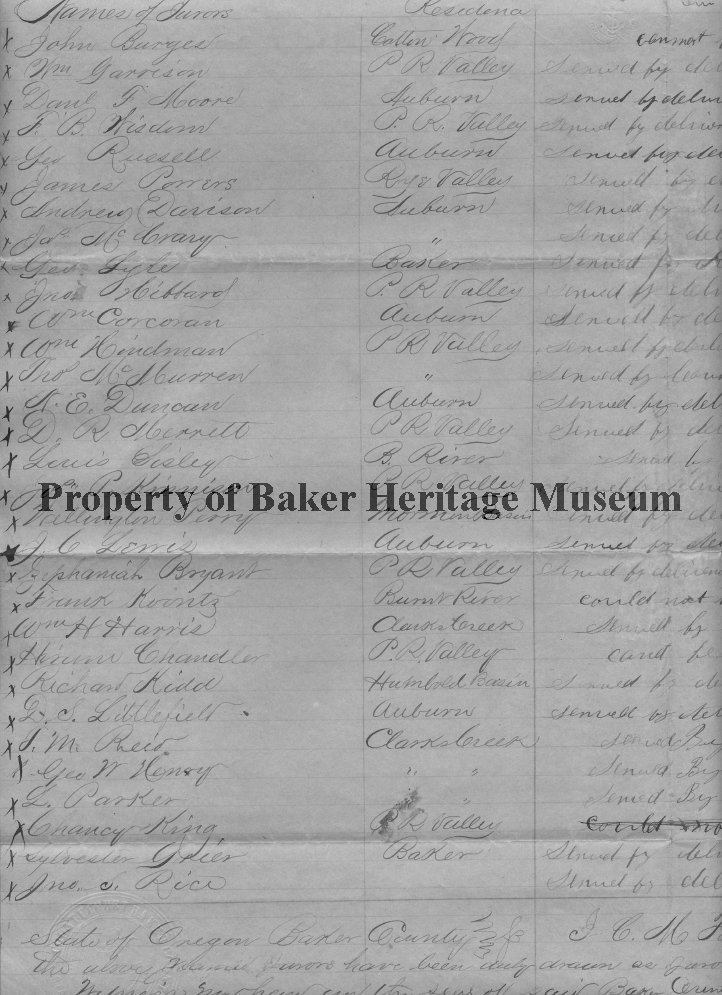 Names of Jurors Residena
John Burges Cotton Wood cannot
Wm Garrison P R Valley Served by del
Danl F. Moore Auburn Served by deliv
F. B. Wisdom P. R. Valley Served by deliver
Geo Russell Auburn Served by del
James Powers Rye Valley Served by
Andrew Davison Auburn Served by
Jas McCrary " Served by del
Geo Lyle Baker Served by
Jno Hibbard P. R Valley Served by del
Wm Corcoran Auburn Served by de
Wm Hindman P R Valley Served by del
Thos McMurren " Served by
N. E. Duncan Auburn Served by del
D. R Merrett P R Valley Served by del
Louis Sisley B. River Served by
P R Valley
Property of Baker Heritage Museum
Wellington Perry Served by del
J. C Lewis Auburn Served by de
Zephaniah Bryant P R Valley Served by deliver
Frank Koontz Burnt River could not
Wm H Harris Clarks Creek Served by
Hiram Chandler P. R. Valley
Richard Kidd Humbold Basin Served by de
D. S. Littlefield Auburn Served by del
J. M. Reid Clarks Creek Served By
Geo W Henry " " Served By
L. Parker " Served By
Chancy King P R Valley could no
Sylvester Grier Baker Served by del
Jno. S. Rice Served by del
State of Oregon Baker County } ss I C. M.
the above named Jurors have been duly drawn as Juro